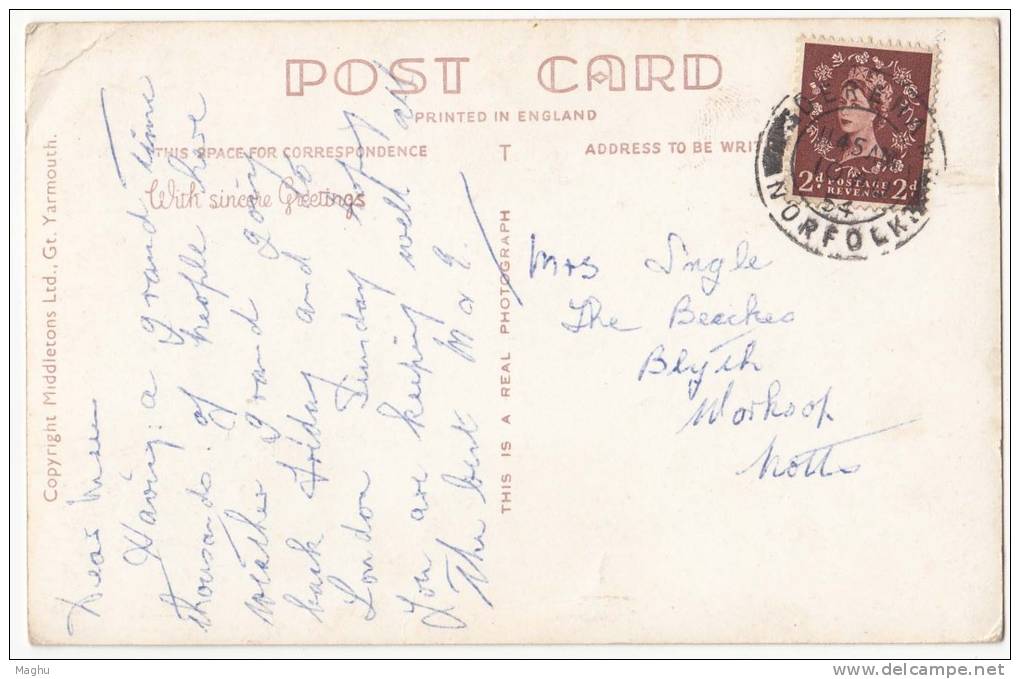 POST CARD
PRINTED IN ENGLAND
THIS SPACE FOR CORRESPONDENCE
ADDRESS TO BE WRIT
With sincere Greetings
Copyright Middletons Ltd., Gt. Yarmouth.
THIS IS A REAL PHOTOGRAPH T
Dear
Having a grand time
thousands of people here
weather grand going
back Friday and to
London Sunday hope
You are keeping well all
The best M & E.
Mrs Ingle
The Beeches
Blyth
Worksop
Notts
DEREHAM
11 45 AM
54
NORFOLK
2d POSTAGE 2d
REVENUE
Maghu
www.delcampe.net